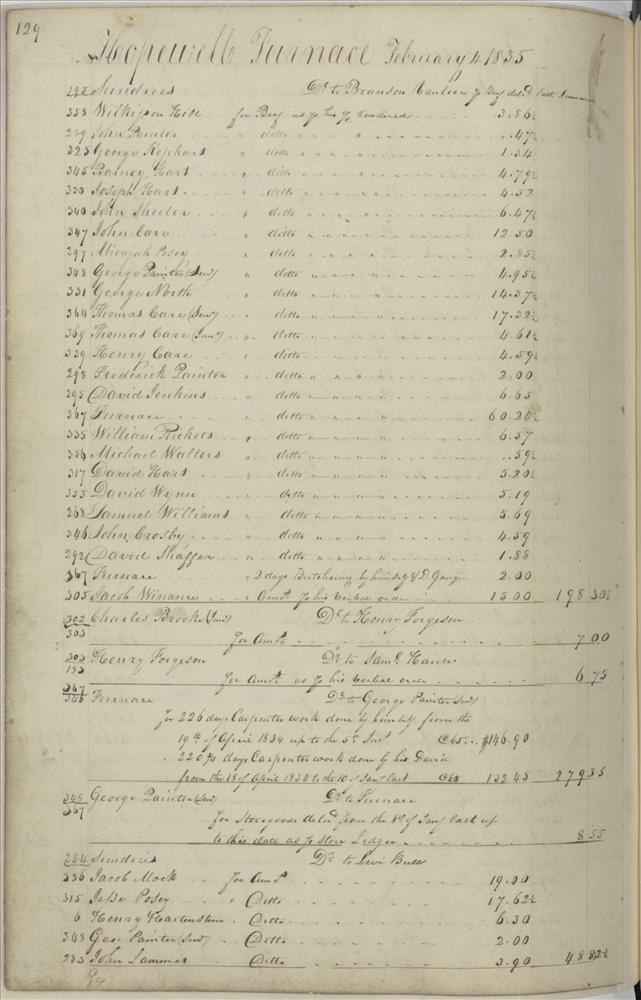 129
Hopewell Furnace February 4 1835
295 Sundries Dr. to Branson Vanleer p Beef deld. last Summer
358 Wilkison Hill for Beef as p his a/c rendered 3.86½
289 John Painter " ditto " " .47½
325 George Rephart ditto 1.34
345 Barney Hart " ditto 4.79½
330 Joseph Hart " ditto 4.52
340 John Sheeler " ditto 6.47½
347 John Care " ditto 12.50
297 Micajah Posey " ditto 2.85½
348 George Painter (Senr) " ditto 4.95½
331 George North " ditto 14.37½
364 Thomas Care (Senr) " ditto 17.32½
369 Thomas Care (Junr) " ditto 4.61½
339 Henry Care " ditto 4.59½
298 Frederick Painter " ditto 2.00
295 David Jenkins " ditto 6.65
367 Furnace " ditto 60.24½
335 William Rickets " ditto 6.57
336 Michael Walters " ditto .59½
317 David Hart " ditto 5.20½
355 David Wynn " ditto 5.19
268 Samuel Williams " ditto 5.69
346 John Crosby " ditto 4.59
292 David Shaffer " ditto 1.88
367 Furnace " 2 days Butchering by himself & D. 2.00
305 Jacob Winance " Amt. p his verbal order 15 00 198 30½
302 Charles Brooke (Junr) Dr. to Henry Forgeson
303 for Amt. 7 00
303 Henry Forgeson Dr. to Saml.
183 for Amt. as p his verbal order 6 75
367 Furnace Dr. to George Painter (Senr)
348 for 226 days Carpenter work done by himself from the
19th of April 1834 up to the 5th Inst @65 $146.90
" 220¾ days Carpenter work done by his David
from the 18 of April 1834 to the 10 of Jany last @60 132 45 279 35
348 George Painter (Senr) Dr. to Furnace
367 for Storegoods deld. from the of Jany last up
to this date as p Store Ledger 8 55
284 Sundries Dr. to Levi Bull
336 Jacob Mock for Amt. 19.00
315 Jesse Posey " Ditto 17.62½
6 Henry Hartenstine " Ditto 6.30
348 Geo. Painter (Senr) " Ditto 2.00
283 John Lammes Ditto 3.90 48 82½